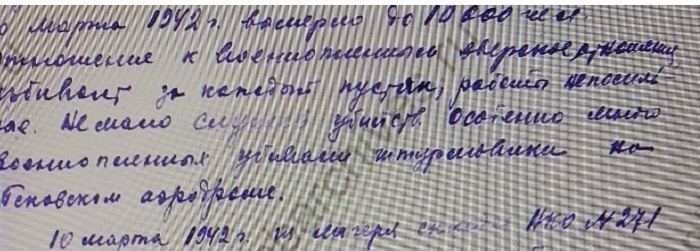 марта 1942 г. вымерло до 10000 чел.
отношение к военнопленным зверское,
убивают за каждый пустяк, работы непосиль-
ные. Немало случаев убийств. Особенно много
военнопленных убивали штурмовики на
аэродроме.
10 марта 1942 г. из лагеря НКО № 271